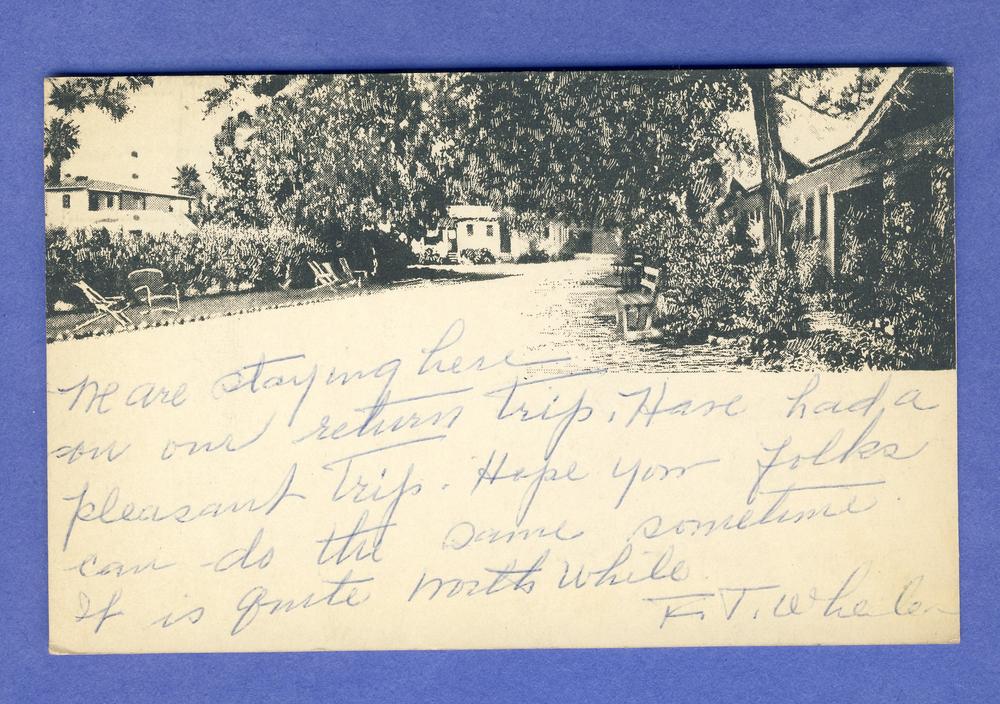 We are staying here
on our return trip. Have had a
pleasant trip. Hope you folks
can do the same sometime
It is quite worth while
F. T.